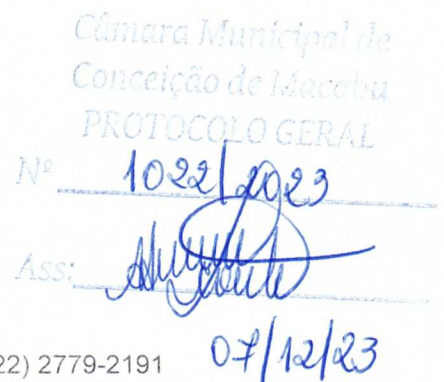 Câmara Municipal de
Conceição de Macabu
PROTOCOLO GERAL
Nº 1022/2023
Ass:
22) 2779-2191 07/12/23